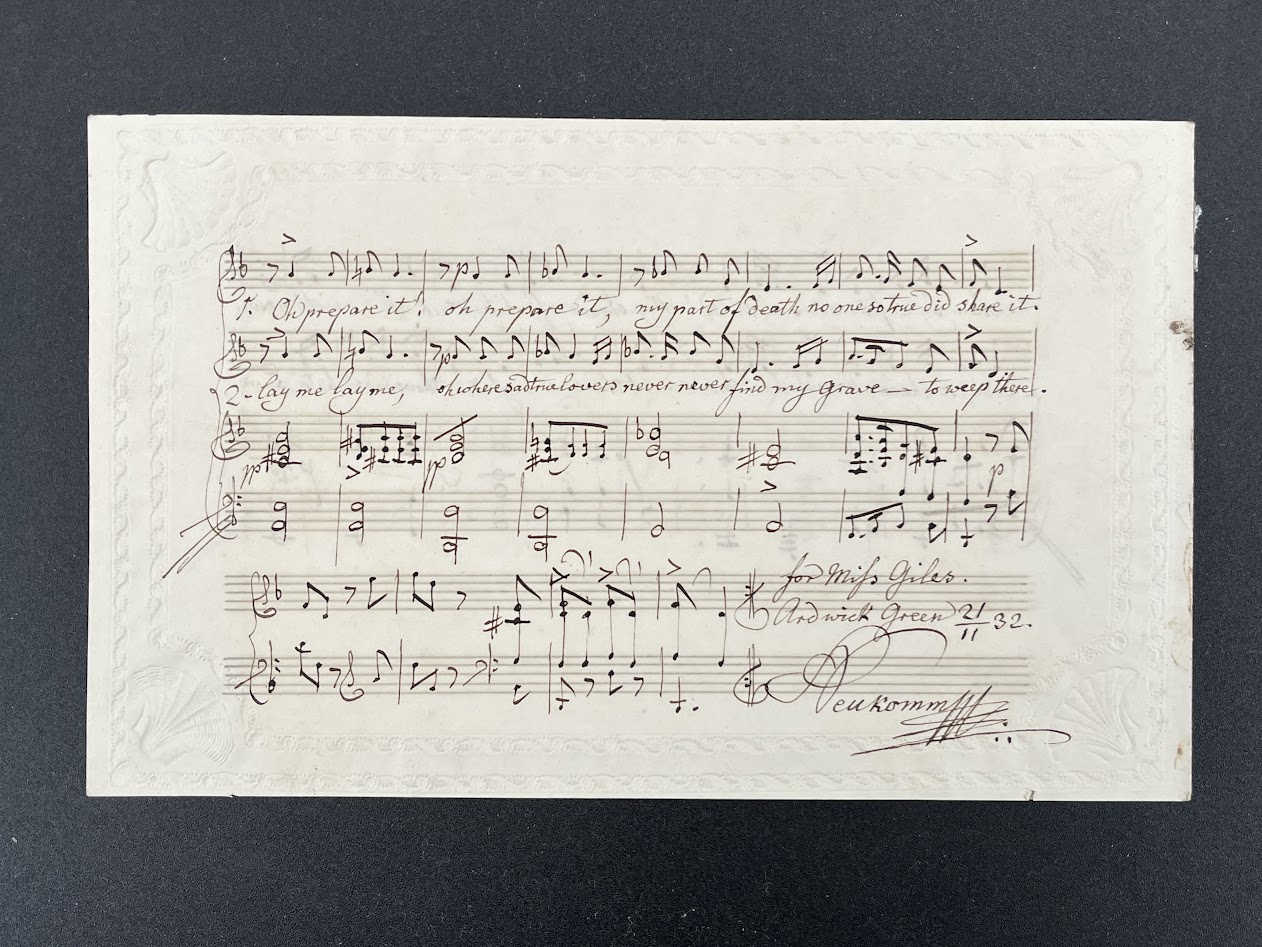 1. Oh prepare it! oh prepare it, my part of death no one so true did share it.
2 - lay me lay me, oh where sad true lovers never never find my grave — to weep there.
p
p
pp
pp
p
for Miſs Giles.
Ardwick Green 21/11 32.
Neukomm